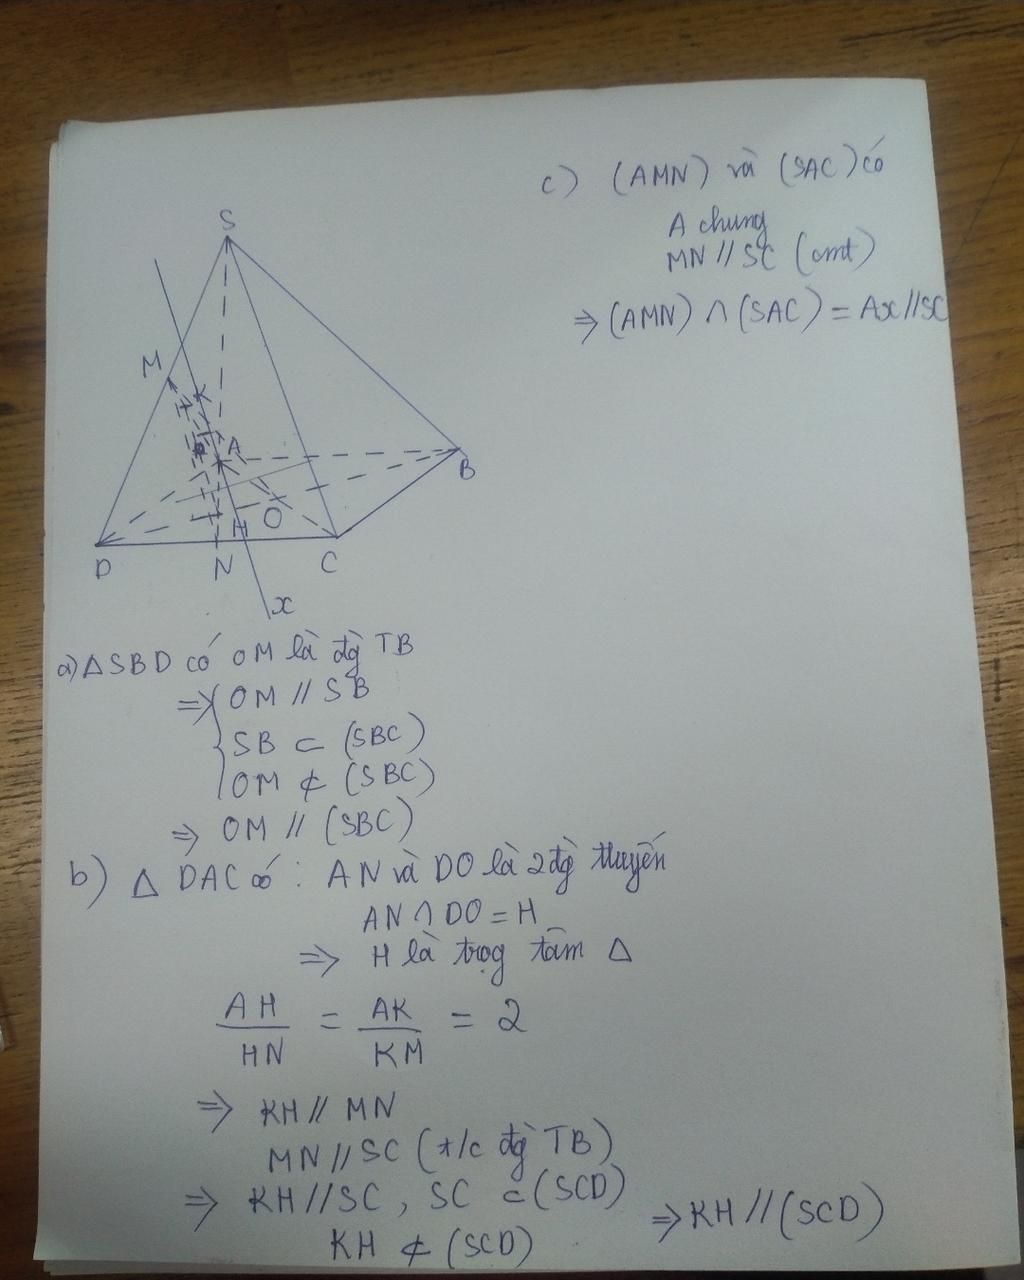 S
M
K
A
B
D
N
H
O
C
x
a) △SBD có OM là đg̀ TB
⇒ { OM // SB
SB ⊂ (SBC)
OM ⊄ (SBC)
⇒ OM // (SBC)
b) △ DAC có : AN và DO là 2 đg̀ ttuyến
AN ∩ DO = H
⇒ H là trọg tâm △
AH/HN = AK/KM = 2
⇒ KH // MN
MN // SC (t/c đg̀ TB)
⇒ KH // SC , SC ⊂ (SCD)
KH ⊄ (SCD)
⇒ KH // (SCD)
c) (AMN) và (SAC) có
A chung
MN // SC (cmt)
⇒ (AMN) ∩ (SAC) = Ax // SC